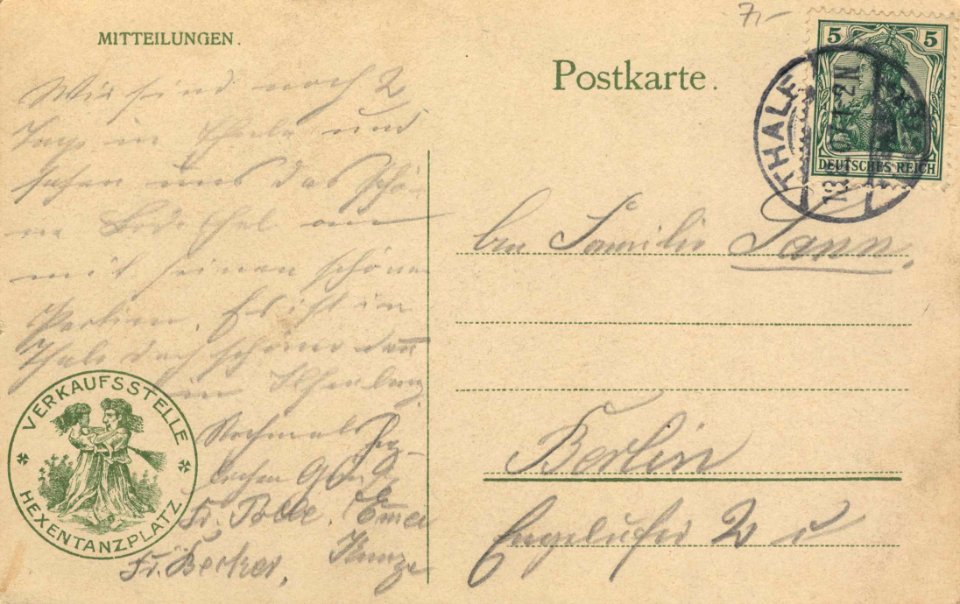 7,-
MITTEILUNGEN.
Postkarte.
5 5
DEUTSCHES REICH
THALE
Wir sind noch 2
Tage in Thale und
sehen uns das schö-
ne Bodethal an
mit seinen schönen
Partien. Es ist in
Thale doch schöner denn
in Ilsenburg
Nochmals herz-
lichen Gruß
Fr. Bolle. Emma
Fr. Becker, Kunze
VERKAUFSSTELLE
HEXENTANZPLATZ
Familie Tann.
Berlin
Engelufer 2